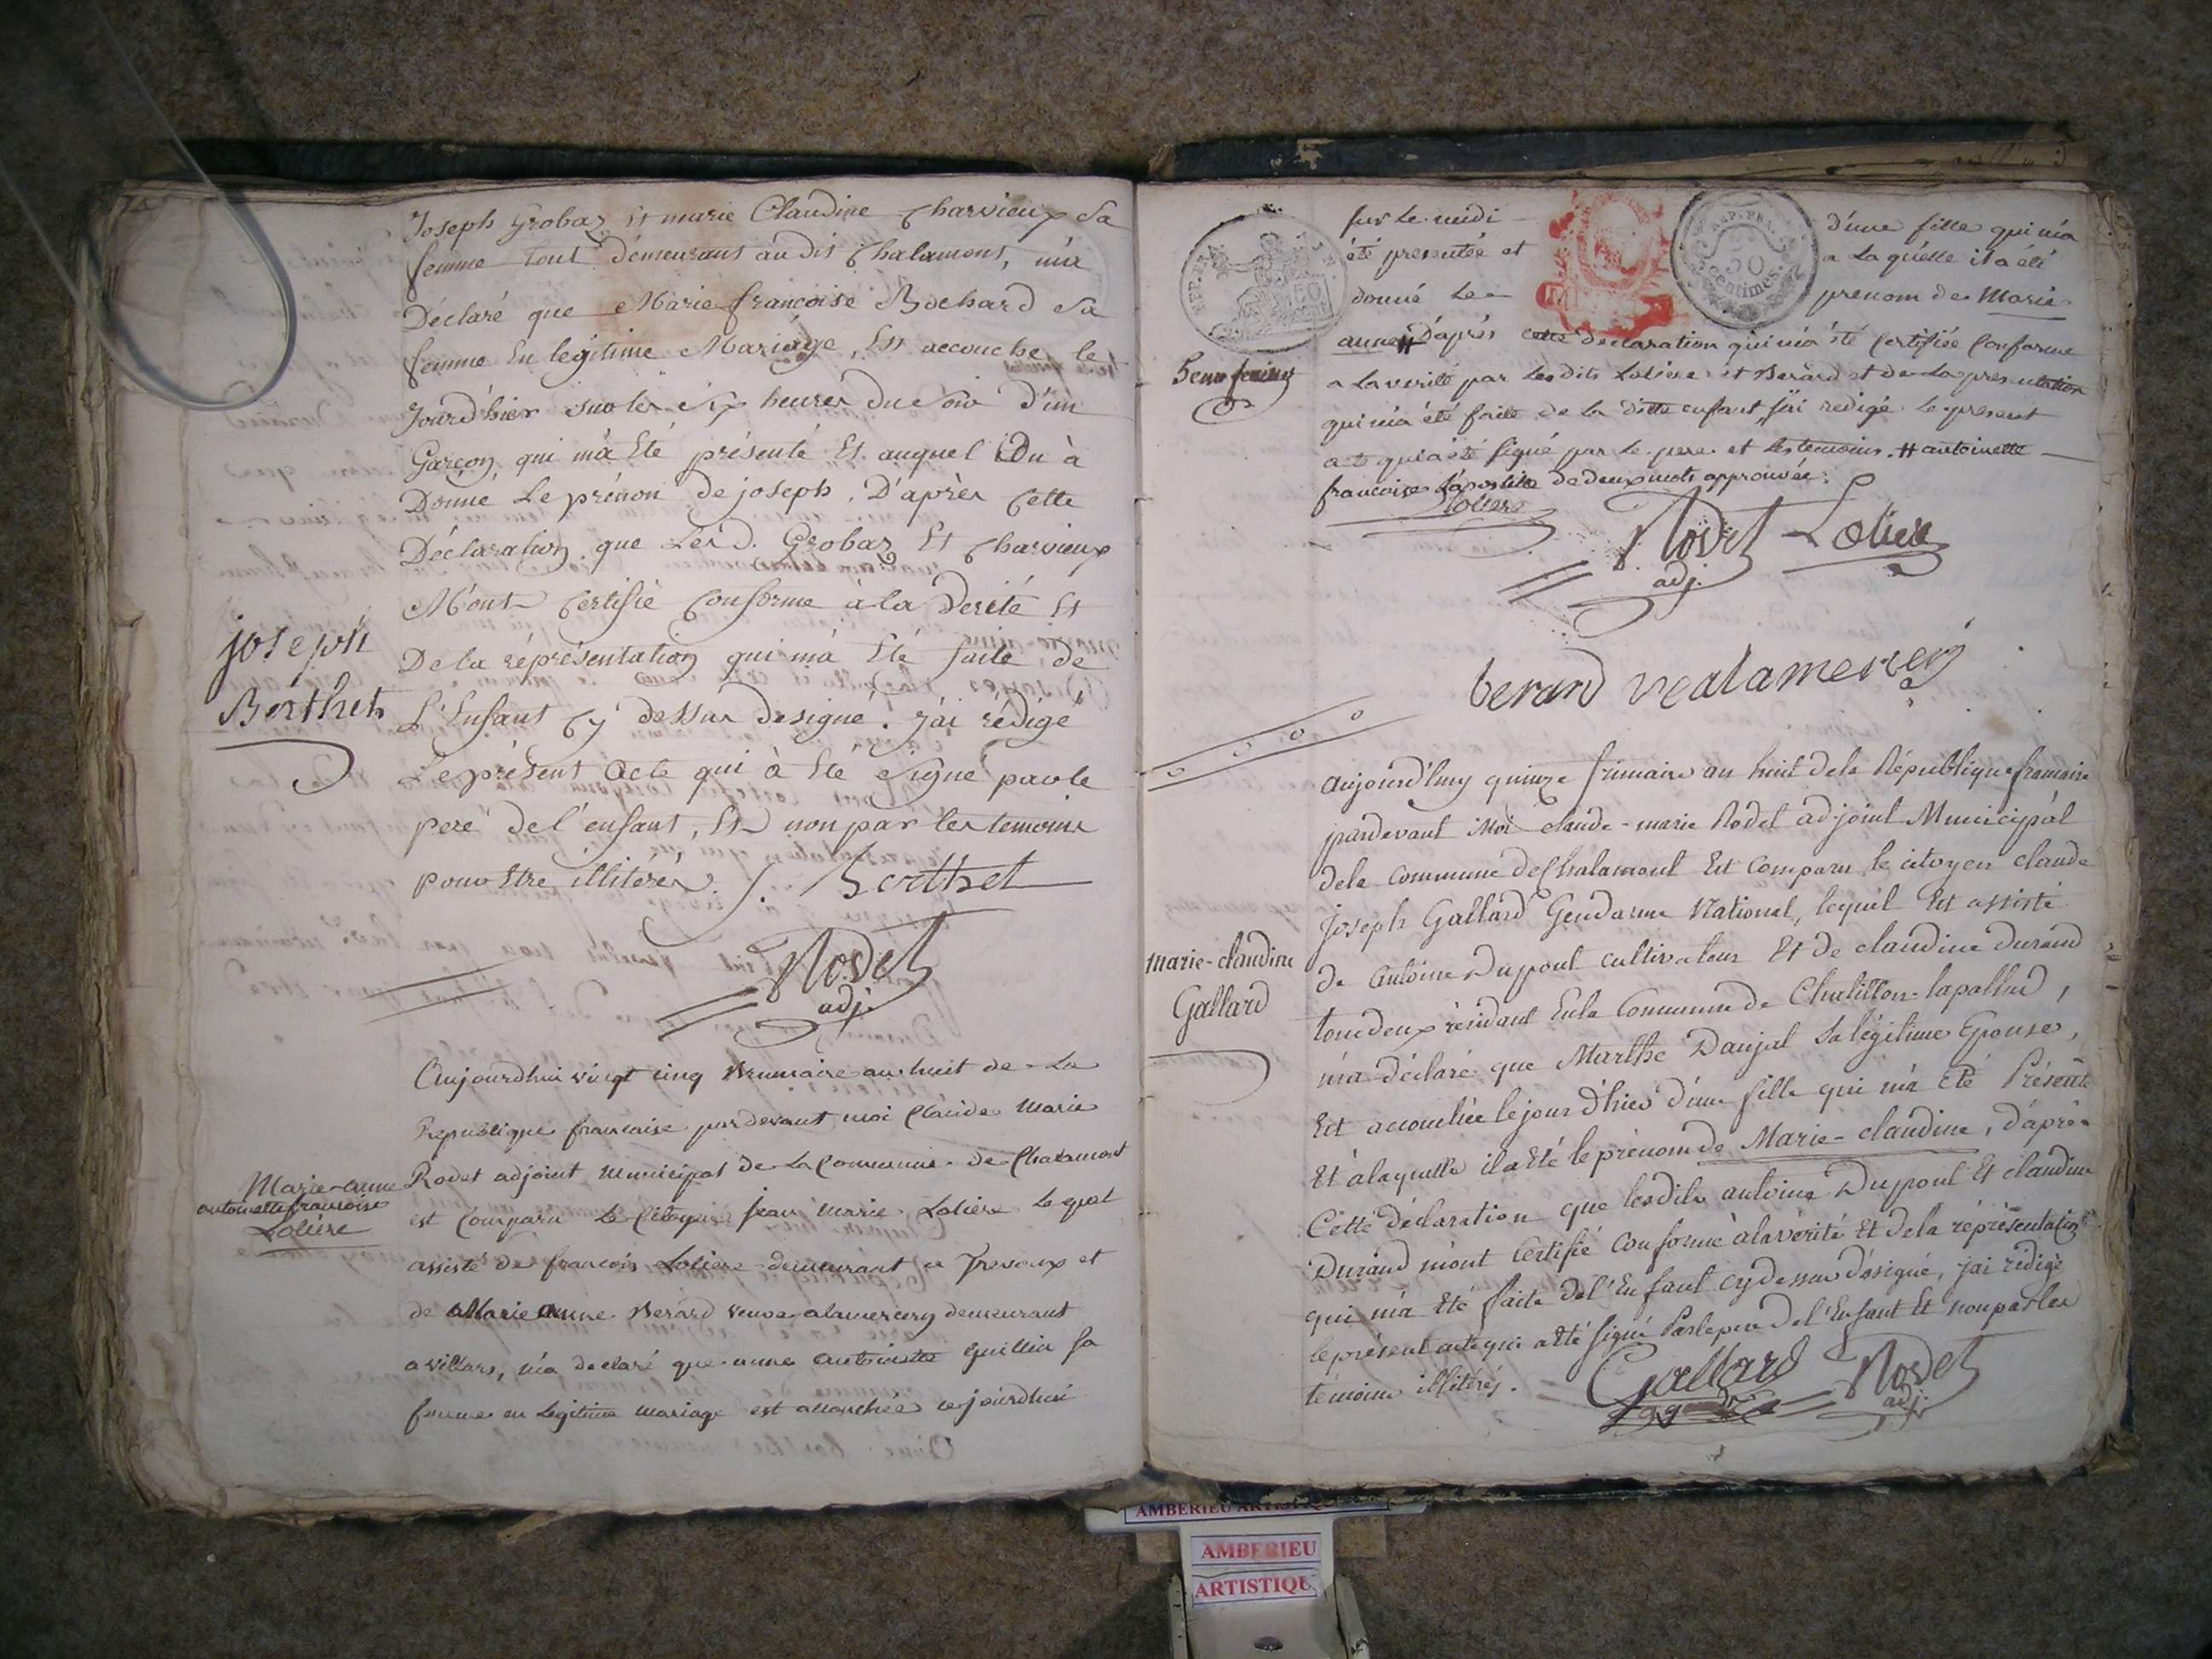 Joseph Grobaz Et marie Claudine Charvieux Sa
femme tout démeurants au dit Chalamont, m'a
Déclaré que Marie françoise Bochard Sa
femme En legitime Mariage, Est accouche le
Jourd'hier sur les Six heures du Soir d'un
Garçon qui m'a Eté présenté Et auquel On à
Donné Le prénom de joseph. D'après Cette
Déclaration que Lesd. Grobaz Et Charvieux
M'ont Certifié Conforme à la Verité Et
De la réprésentation qui m'a Eté faite, de
L'Enfant Cy dessus designé. J'ai rédigé
Le présent Acte qui à Eté Signé par le
pere de l'enfant, Et non par les temoins
pour Etre illitérés. J. Berthet
joseph
Berthet
Rodet
adj.
Aujourdhui vingt cinq Brumaire an huit de La
Republique francaise pardevant moi Claude Marie
Rodet adjoint municipal de La Commune de Chalamont
est Comparu Le Citoyen jean marie Loliere Le quel
assisté de francois Loliere demeurant a Trevoux et
de Marie Anne Berard veuve alamercery demeurant
a villars, m'a declaré que anne antoinette Guillin Sa
femme en Legitime mariage est accouchée cejourdhui
Marie-anne
antoinette francoise
Loliere
REP. FRA.
50
centimes
sur Le midi D'une fille qui m'a
été presentée et a La quelle il a été
donné Le prenom de Marie
anne # D'aprés cette declaration qui m'a été Certifiée Conforme
a La verité par Lesdits Loliere et Berard et de La presentation
qui m'a été faite de La ditte enfant, j'ai redigé Le present
acte qui a été signé par Le pere et les temoins. # antoinette
francoise L'apostille de deux mots approuvée.
Loliere
Rodet Loliere
adj.
berard ve alamercery
Aujourd'huy quinze frimaire an huit dela République francaise
pardevant Moi claude-marie Rodet adjoint Municipal
dela commune de Chalamont Est Comparu le citoyen claude
Joseph Gallard Gendarme National, lequel Est assisté
de Antoine Dupont cultivateur Et de claudine durand
tous deux résidant En la Commune de Chatillon-lapallud,
m'a déclaré que Marthe Danjat Sa légitime Epouse,
Est accouchée le jour d'hier d'une fille qui m'a été Présenté
Et à laquelle il a Eté le prénom de Marie-claudine, d'après
Cette déclaration que lesdits antoine Dupont Et claudine
Durand m'ont Certifié conforme à la vérité Et de la réprésentation
qui m'a Eté faite de l'Enfant cy dessus désigné, j'ai rédigé
le présent acte qui a Eté signé Par le pere de l'Enfant Et non par les
témoins illitérés.
marie-claudine
Gallard
Gallard Rodet
adj.
AMBERIEU ARTISTIQUE
AMBERIEU
ARTISTIQU